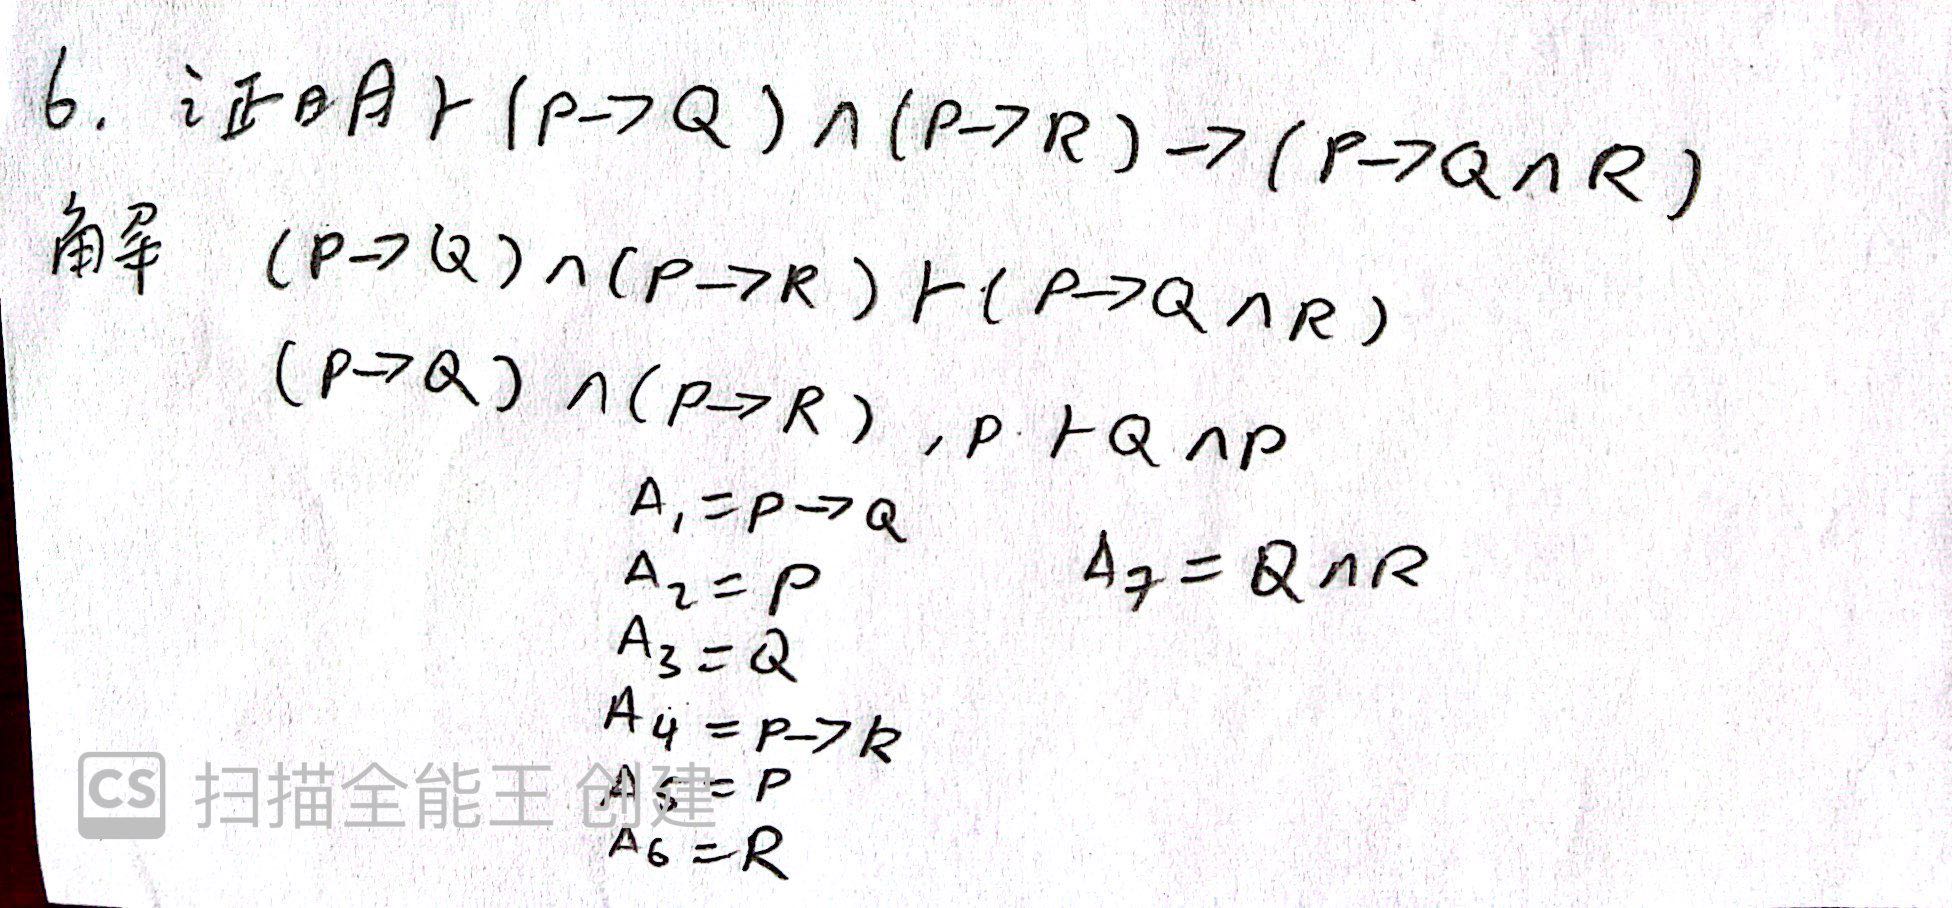 6. 证明⊢(P→Q)∧(P→R)→(P→Q∧R)
解 (P→Q)∧(P→R)⊢(P→Q∧R)
(P→Q)∧(P→R),P⊢Q∧P
A₁=P→Q
A₂=P
A₃=Q
A₄=P→R
A₅=P
A₆=R
A₇=Q∧R
CS 扫描全能王 创建